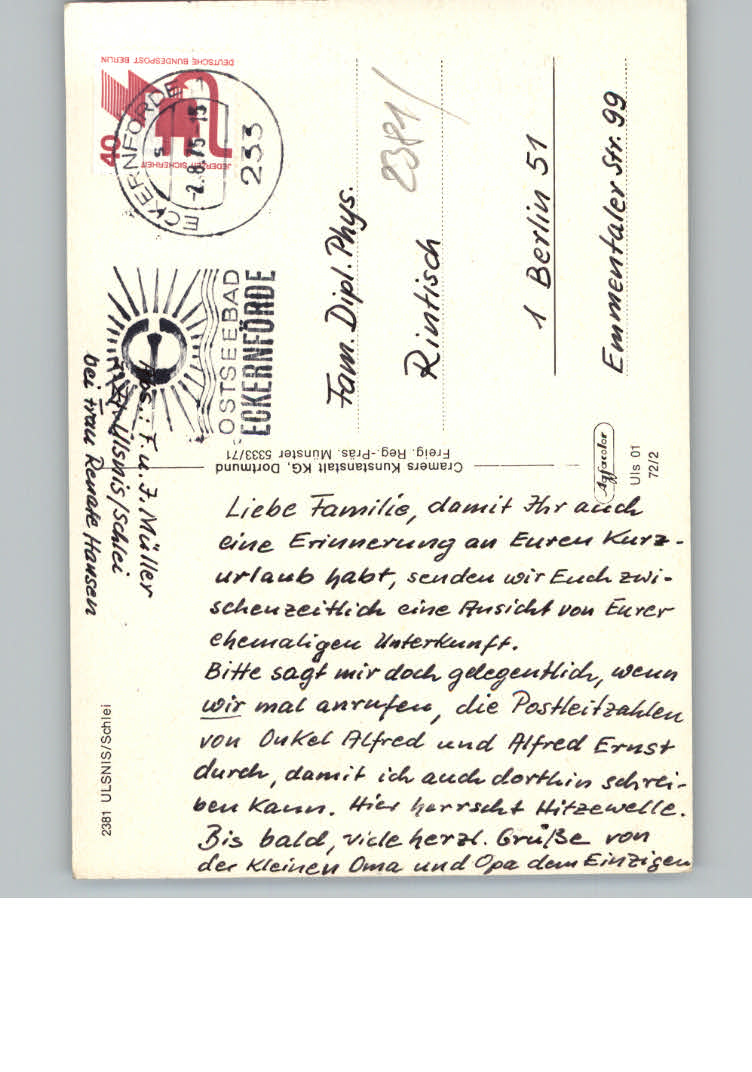 DEUTSCHE BUNDESPOST BERLIN
40
JEDERZEIT SICHERHEIT
ECKERNFÖRDE 1
s
-2.8.75-13
233
OSTSEEBAD
ECKERNFÖRDE
Fam. Dipl. Phys.
Rintisch
2381/
1 Berlin 51
Emmentaler Str. 99
Abs.: F. u. J. Müller
Ulsnis/Schlei
bei Frau Renate Hansen
Cramers Kunstanstalt KG, Dortmund
Freig. Reg.-Präs. Münster 5333/71
Agfacolor
Uls 01
72/2
2381 ULSNIS/Schlei
Liebe Familie, damit Ihr auch
eine Erinnerung an Euren Kurz-
urlaub habt, senden wir Euch zwi-
schenzeitlich eine Ansicht von Eurer
ehemaligen Unterkunft.
Bitte sagt mir doch gelegentlich, wenn
wir mal anrufen, die Postleitzahlen
von Onkel Alfred und Alfred Ernst
durch, damit ich auch dorthin schrei-
ben kann. Hier herrscht Hitzewelle.
Bis bald, viele herzl. Grüße von
der kleinen Oma und Opa dem Einzigen